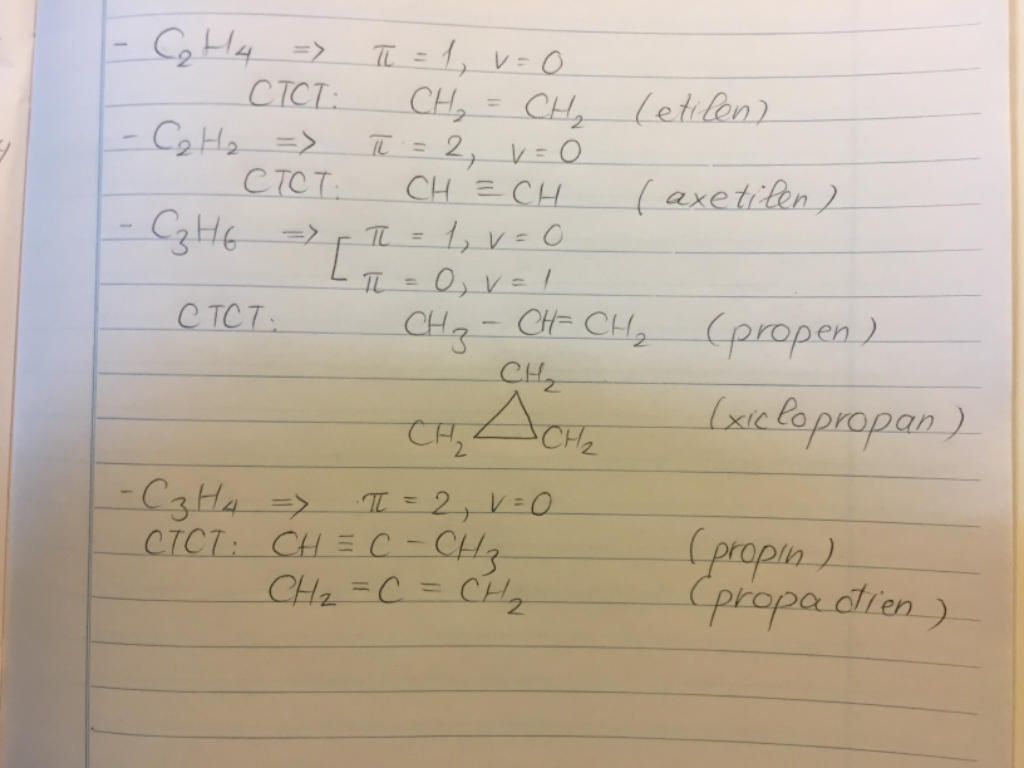 - C₂H₄ => π = 1, v = 0
CTCT: CH₂ = CH₂ (etilen)
- C₂H₂ => π = 2, v = 0
CTCT: CH ≡ CH (axetilen)
- C₃H₆ => [ π = 1, v = 0
π = 0, v = 1
CTCT: CH₃ - CH = CH₂ (propen)
CH₂
CH₂ CH₂ (xiclopropan)
- C₃H₄ => π = 2, v = 0
CTCT: CH ≡ C - CH₃ (propin)
CH₂ = C = CH₂ (propadien)